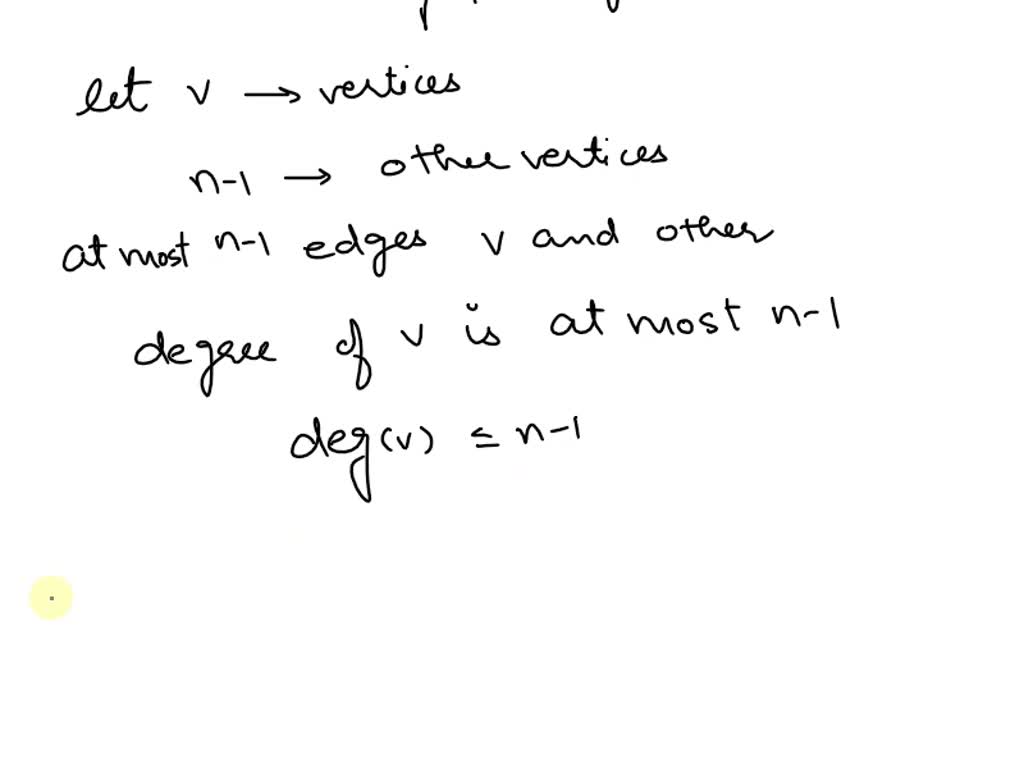 let v → vertices
n-1 → other vertices
at most n-1 edges v and other
degree of v is at most n-1
deg(v) ≤ n-1